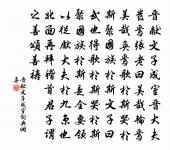 晉獻文子成室晉大夫
發焉張老曰美哉輪焉
美哉奐焉歌於斯哭於
斯聚國族於斯文子曰
武也得歌於斯哭於斯
聚國族於斯是全要領
以從先大夫於九京也
北面再拜稽首君子謂
之善頌善禱
晉獻文子成室